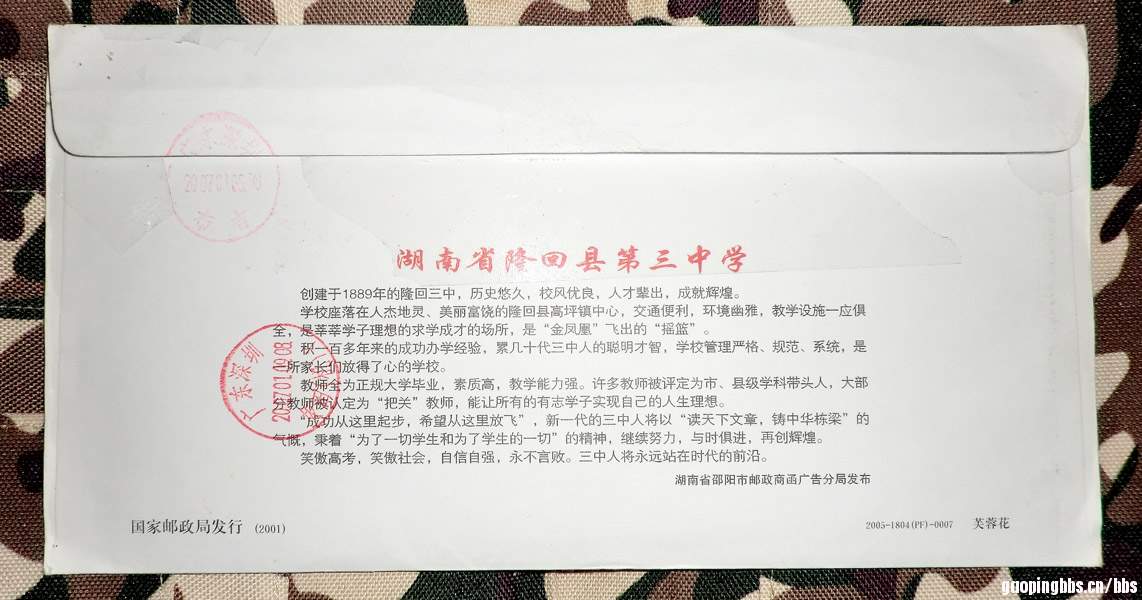 湖南省隆回县第三中学
创建于1889年的隆回三中，历史悠久，校风优良，人才辈出，成就辉煌。
学校座落在人杰地灵、美丽富饶的隆回县高坪镇中心，交通便利，环境幽雅，教学设施一应俱
全，是莘莘学子理想的求学成才的场所，是“金凤凰”飞出的“摇篮”。
积一百多年来的成功办学经验，累几十代三中人的聪明才智，学校管理严格、规范、系统，是
一所家长们放得了心的学校。
教师全为正规大学毕业，素质高，教学能力强。许多教师被评定为市、县级学科带头人，大部
分教师被认定为“把关”教师，能让所有的有志学子实现自己的人生理想。
“成功从这里起步，希望从这里放飞”，新一代的三中人将以“读天下文章，铸中华栋梁”的
气慨，秉着“为了一切学生和为了学生的一切”的精神，继续努力，与时俱进，再创辉煌。
笑傲高考，笑傲社会，自信自强，永不言败。三中人将永远站在时代的前沿。
湖南省邵阳市邮政商函广告分局发布
广东深圳
国家邮政局发行 (2001)
2005-1804(PF)-0007 芙蓉花
gaopingbbs.cn/bbs